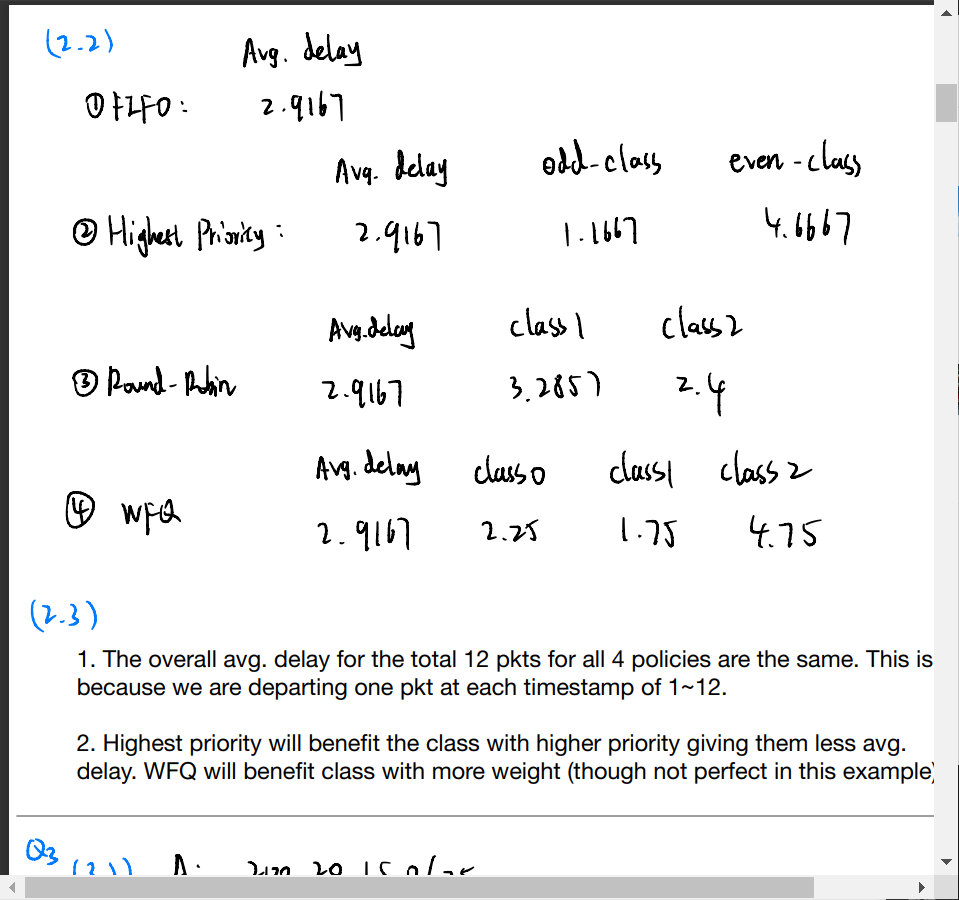 (2.2)
Avg. delay
① FIFO: 2.9167
Avg. delay odd-class even-class
② Highest Priority: 2.9167 1.1667 4.6667
Avg. delay class 1 class 2
③ Round-Robin 2.9167 3.2857 2.4
Avg. delay class 0 class 1 class 2
④ WFQ 2.9167 2.25 1.75 4.75
(2.3)
1. The overall avg. delay for the total 12 pkts for all 4 policies are the same. This is
because we are departing one pkt at each timestamp of 1~12.
2. Highest priority will benefit the class with higher priority giving them less avg.
delay. WFQ will benefit class with more weight (though not perfect in this example)
Q3